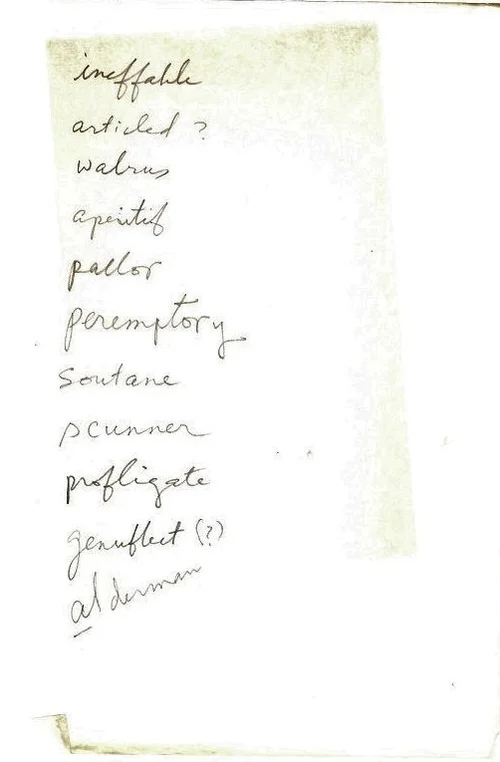 ineffable
articled ?
walrus
aperitif
pallor
peremptory
Soutane
scunner
profligate
genuflect (?)
alderman